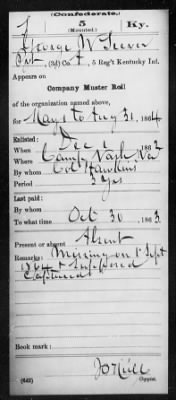 (Confederate.)
5
(Mounted.)
Ky.
George W
(3d) Co. 5 Reg't Kentucky Inf.
Appears on
Company Muster Roll
of the organization named above,
for May 1 to Aug 31, 1864
Enlisted:
When Dec 1 1862
Where Camp Nash, Va
By whom Col Hawkins
Period 3 yrs
Last paid:
By whom
To what time Oct 30 1863
Present or absent Absent
Remarks: Missing on 1" Sept
1864 & Supposed
Captured
Book mark:
(642)
Copyist.